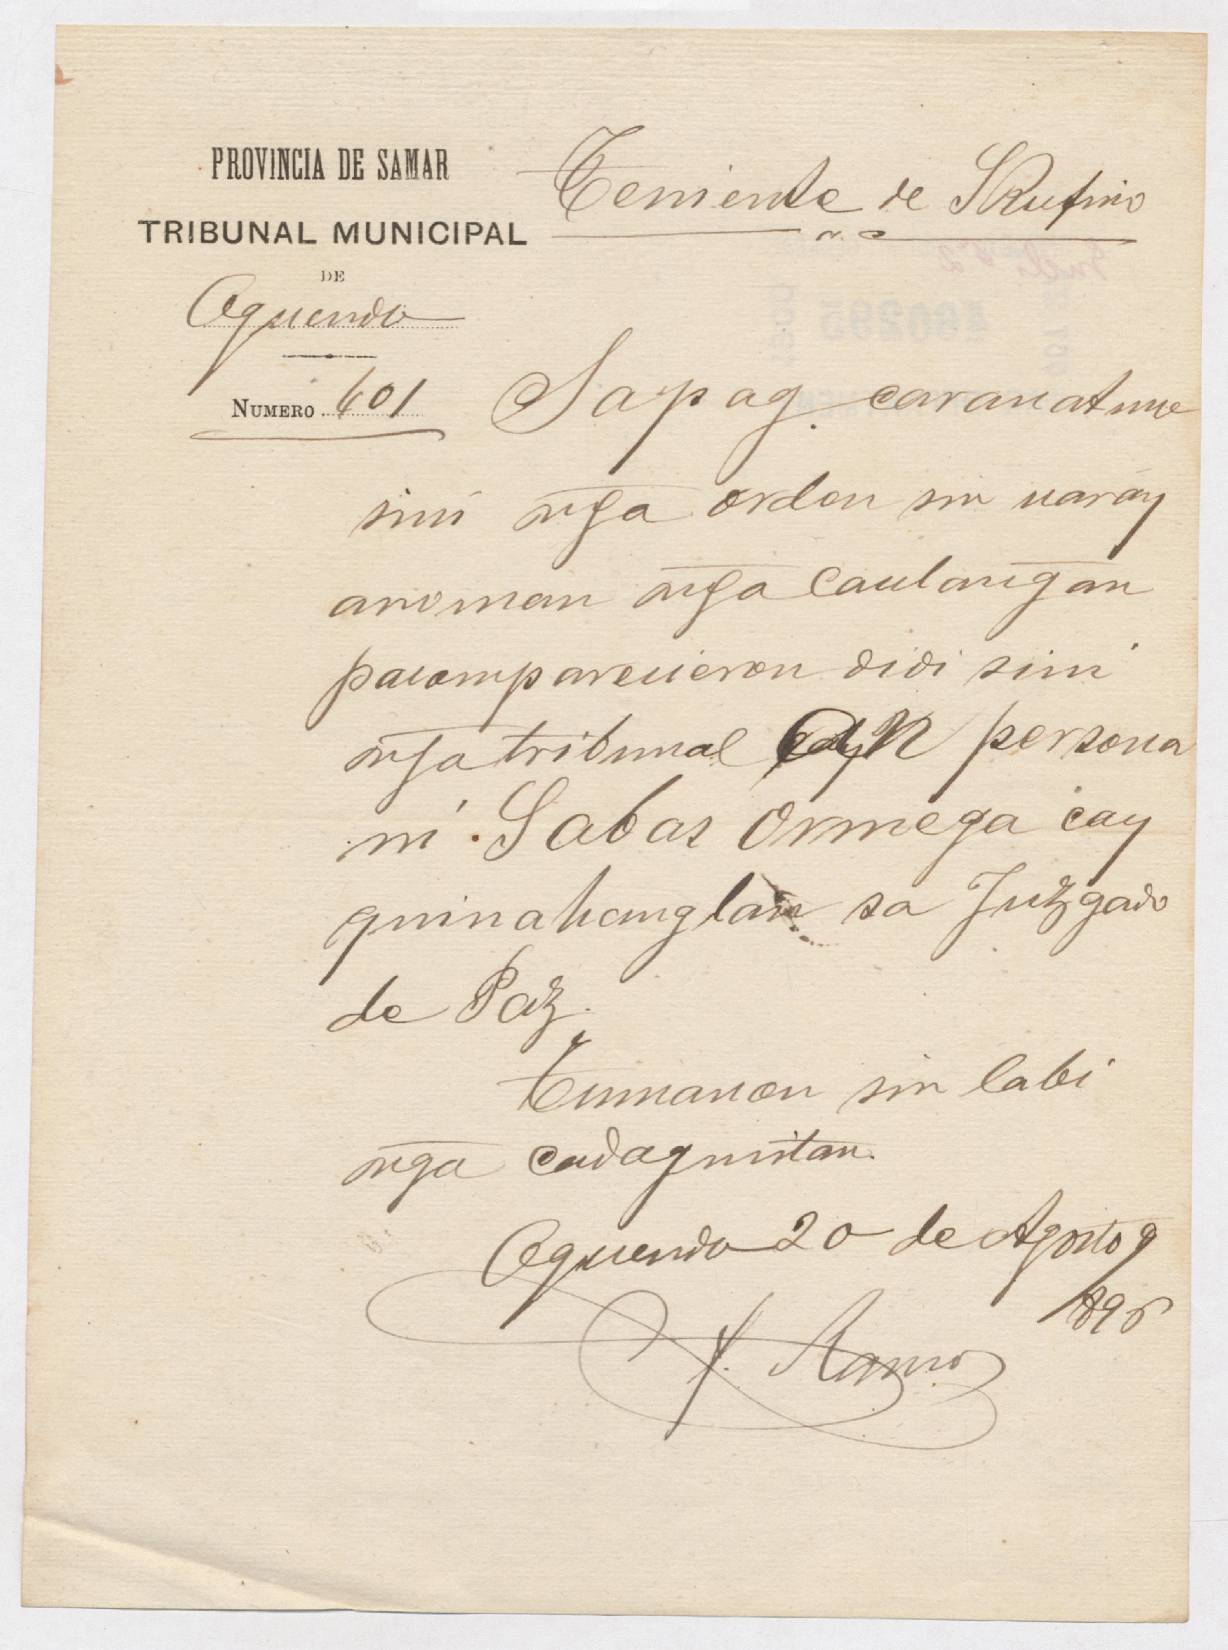 PROVINCIA DE SAMAR
TRIBUNAL MUNICIPAL
DE
Oquendo
NUMERO 601
Teniente de S Rufino
Sapag carauat mo
sini nḡa orden sin uaráy
anoman nḡa caulanḡan
pacomparecieron didi sini
nḡa tribunal an persona
ni Sabas Ormega cay
quinahanglan sa Juzgado
de Paz.
Tumanon sin labi
nḡa cadagmitan.
Oquendo 20 de Agosto 9
1896
Y. Ramo